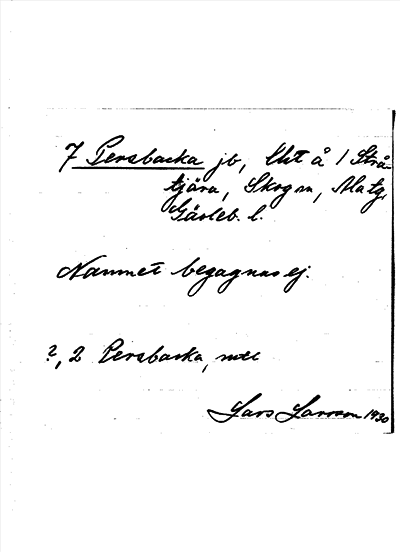 7 Persbacka jb, Utt å 1 Strå-
tjära, Skog sn, Ala tg,
Gävleb. l.
Namnet begagnas ej.
?, 2 Persbacka,
Lars Larsson 1930